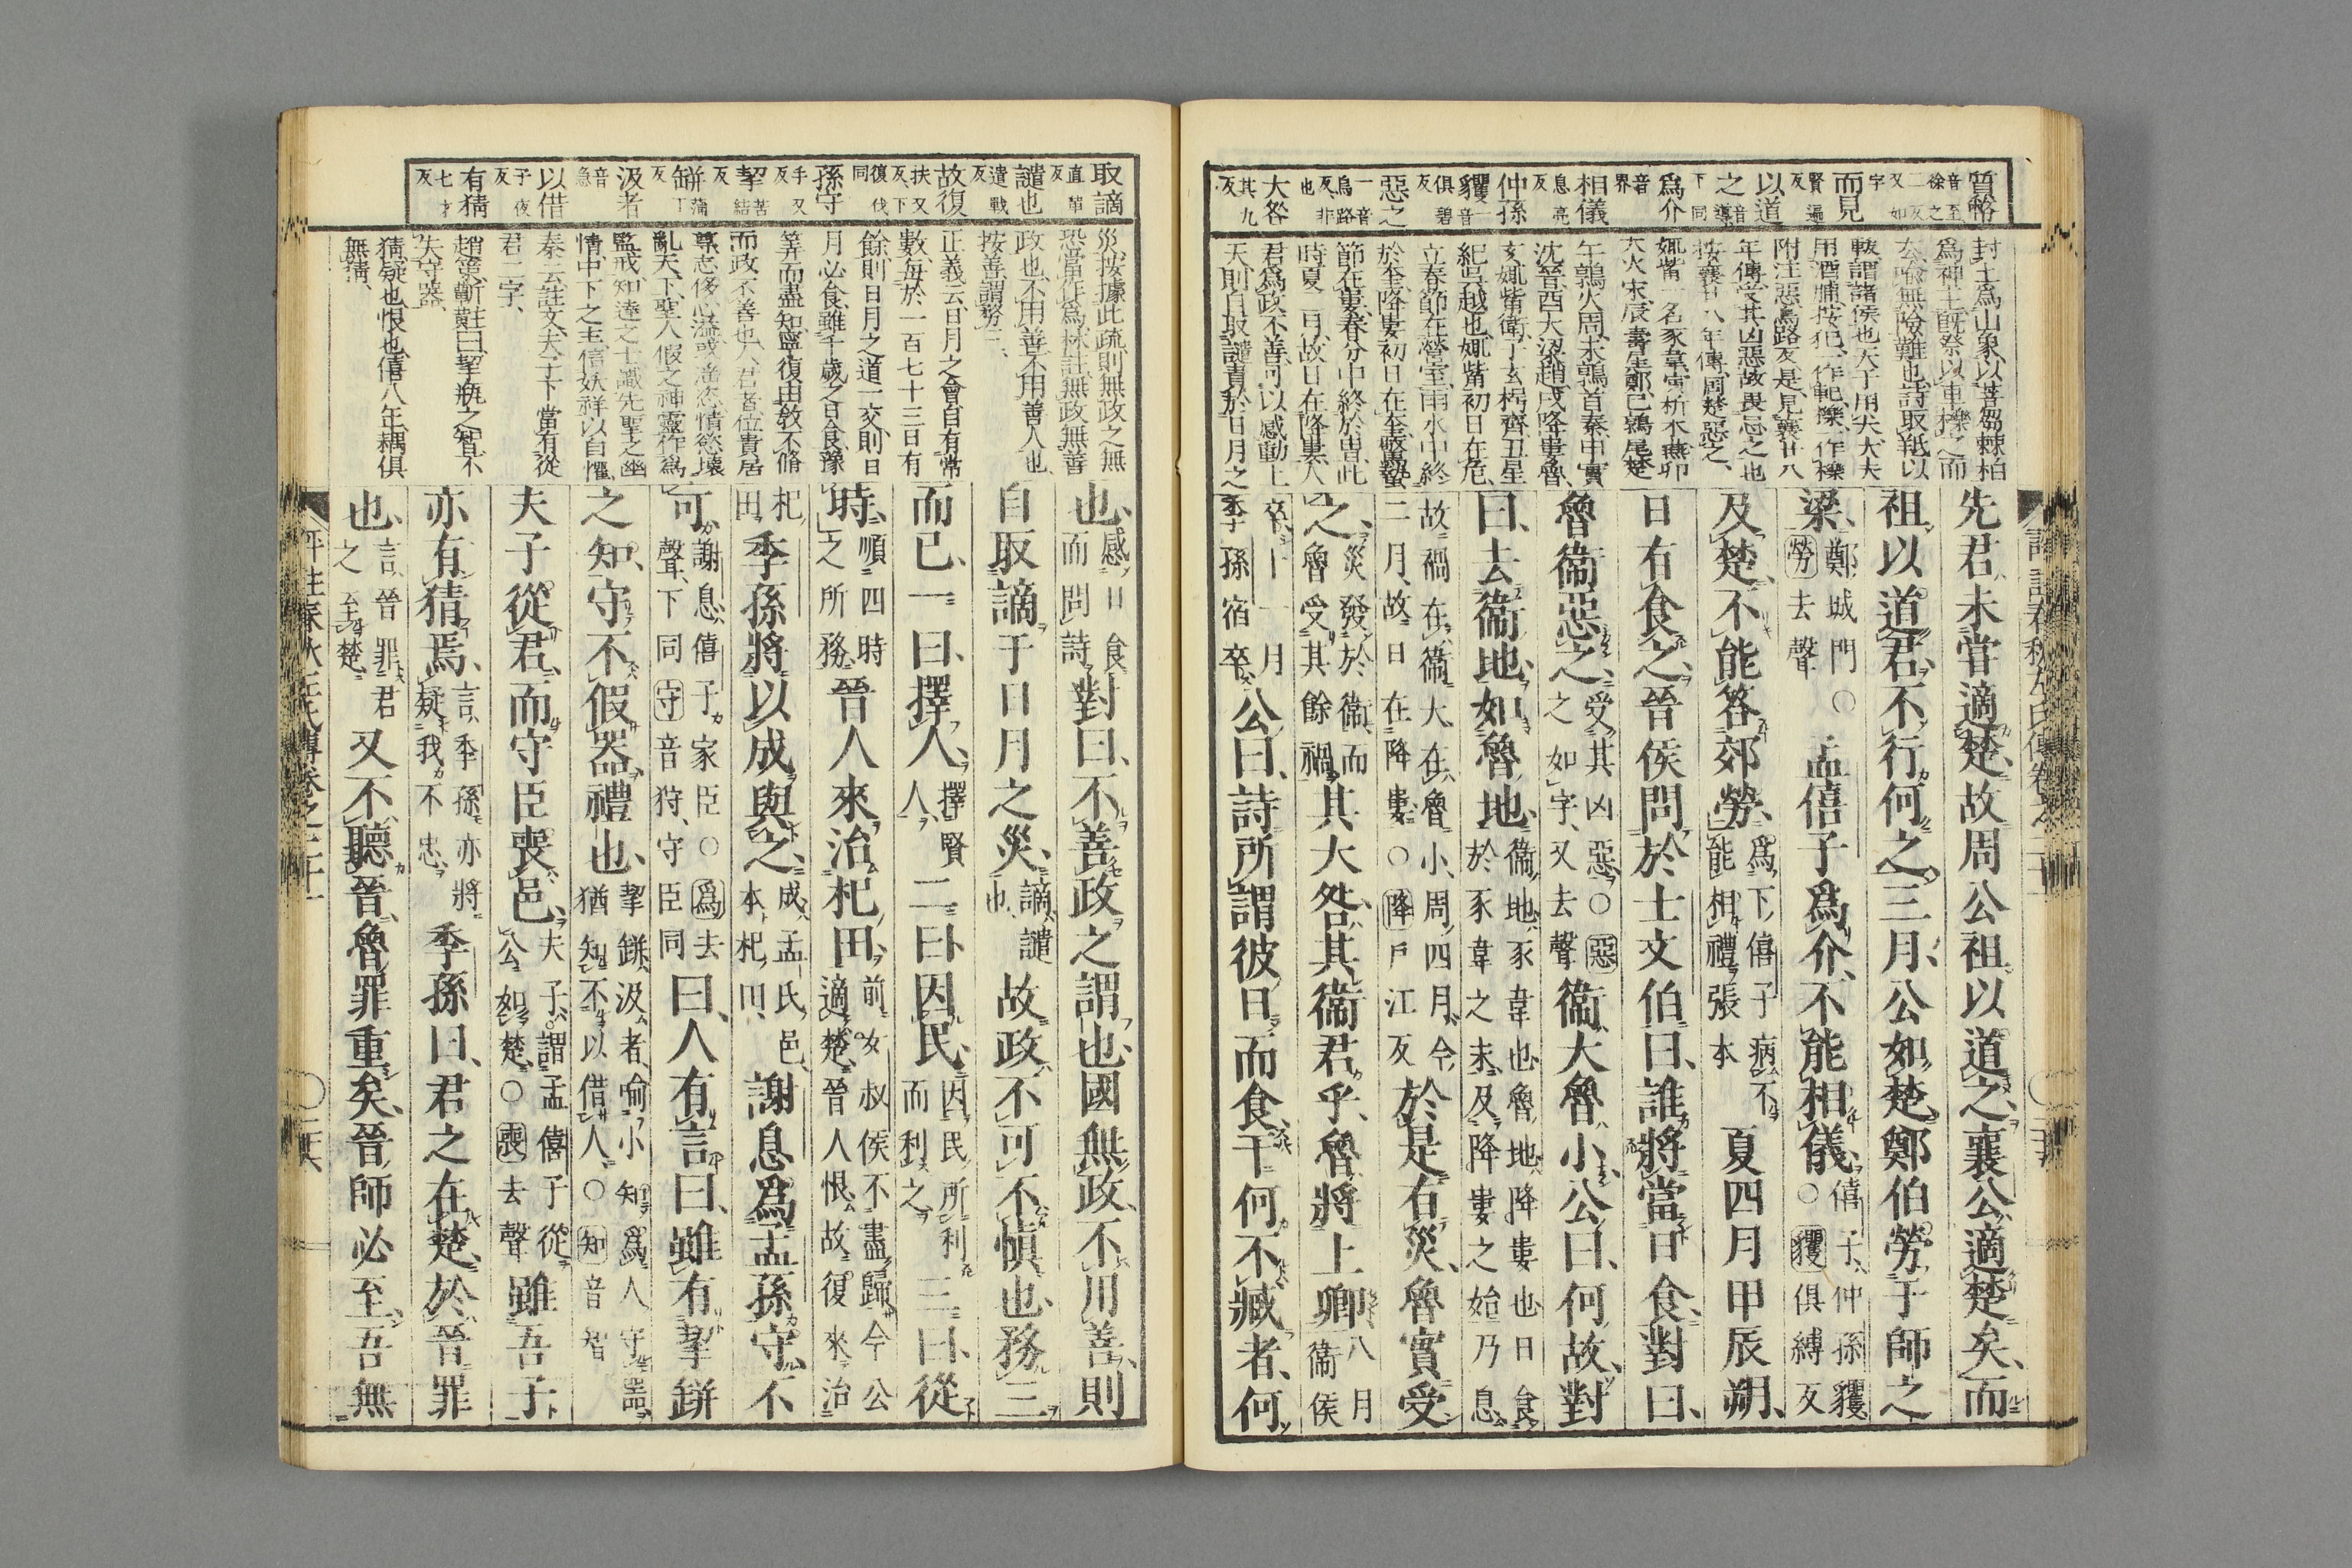 質 音至
略 徐之二反又如字
而見 賢遍反
以道
之 音導下同
爲介 音界
相儀 息亮反
仲孫
貜 音俱碧反
惡之 一音烏路反
大咎 其九反
封土爲山象以菩芻棘柏
爲神主既祭以車轢之而
去喩無險難也詩取羝以
軷謂諸侯也天子用犬大夫
用酒脯按犯一作軋轢一作櫟
附注惡烏路反是見襄廿八
年傳受其凶惡故畏惡之也
按襄廿八年傳周楚惡之
娵觜一名豕韋寅析木燕卯
大火宋辰壽星鄭巳鶉尾楚
午鶉火周未鶉首秦申實
沈晉酉大梁趙戌降婁魯
亥娵觜衛子玄枵齊丑星
紀吳越也娵觜初日在危
立春節在營室雨水中終
於奎降婁初日在奎驚蟄
節在婁春分中終於胃此
時夏二月故日在降婁人
君爲政不善可以感動上
天則自取譴責於日月之
先君未嘗適楚故周公祖以道之襄公適楚矣而
祖以道君不行何之三月公如楚鄭伯勞于師之
梁 鄭城門○勞去聲 孟僖子爲介不能相儀 僖子仲孫貜○貜俱縛反
及楚不能答郊勞 爲下僖子病不能相禮張本 夏四月甲辰朔
日有食之晉侯問於士文伯曰誰將當日食對曰
魯衛惡之 受其凶惡○惡之如字又去聲 衛大魯小公曰何故對
曰去衛地如魯地 衛地豕韋也魯地降婁也日食於豕韋之末及降婁之始乃息
故禍在衛大在魯小周四月今二月故日在降婁○降戶江反 於是有災魯實受
之 災發於衛而魯受其餘禍 其大咎其衛君乎魯將上卿 八月衛侯
卒十一月季孫宿卒 公曰詩所謂彼日而食于何不臧者何
取謫 直革反
譴也 遣戰反
故復 扶又反下復伐同
孫守 手又反
挈 苦結反
缾 蒲丁反
汲者 音急
以借 子夜反
有猜 七才反
災按據此疏則無政之無
恐當作爲林註無政無善
政也不用善不用善人也
按善謂務三
正義云日月之會自有常
數每於一百七十三日有
餘則日月之道一交則日
月必食雖千歲之日食豫
筭而盡知寧復由教不脩
而政不善也人君者位貴居
尊志侈心溢或淫恣情慾壞
亂天下聖人假之神靈作爲
監戒知達之士識先聖之幽
情中下之主信妖祥以自懼
秦云註文夫子下當有從
君二字
趙策靳黈曰挈瓶之智不
失守器
猜疑也恨也僖八年耦俱
無猜
也 感日食而問詩 對曰不善政之謂也國無政不用善則
自取謫于日月之災 謫譴也 故政不可不愼也務三
而已一曰擇人 擇賢人 二曰因民 因民所利而利之 三曰從
時 順四時之所務 晉人來治杞田 前女叔侯不盡歸今公適楚晉人恨故復來治
杞田 季孫將以成與之 成孟氏邑本杞田 謝息爲孟孫守不
可 謝息僖子家臣○爲去聲下同守音狩守臣同 曰人有言曰雖有挈缾
之知守不假器禮也 挈缾汲者喻小知爲人守器猶知不以借人○知音智
夫子從君而守臣喪邑 夫子謂孟僖子從公如楚○喪去聲 雖吾子
亦有猜焉 言季孫亦將疑我不忠 季孫曰君之在楚於晉罪
也 言晉罪君之至楚 又不聽晉魯罪重矣晉師必至吾無